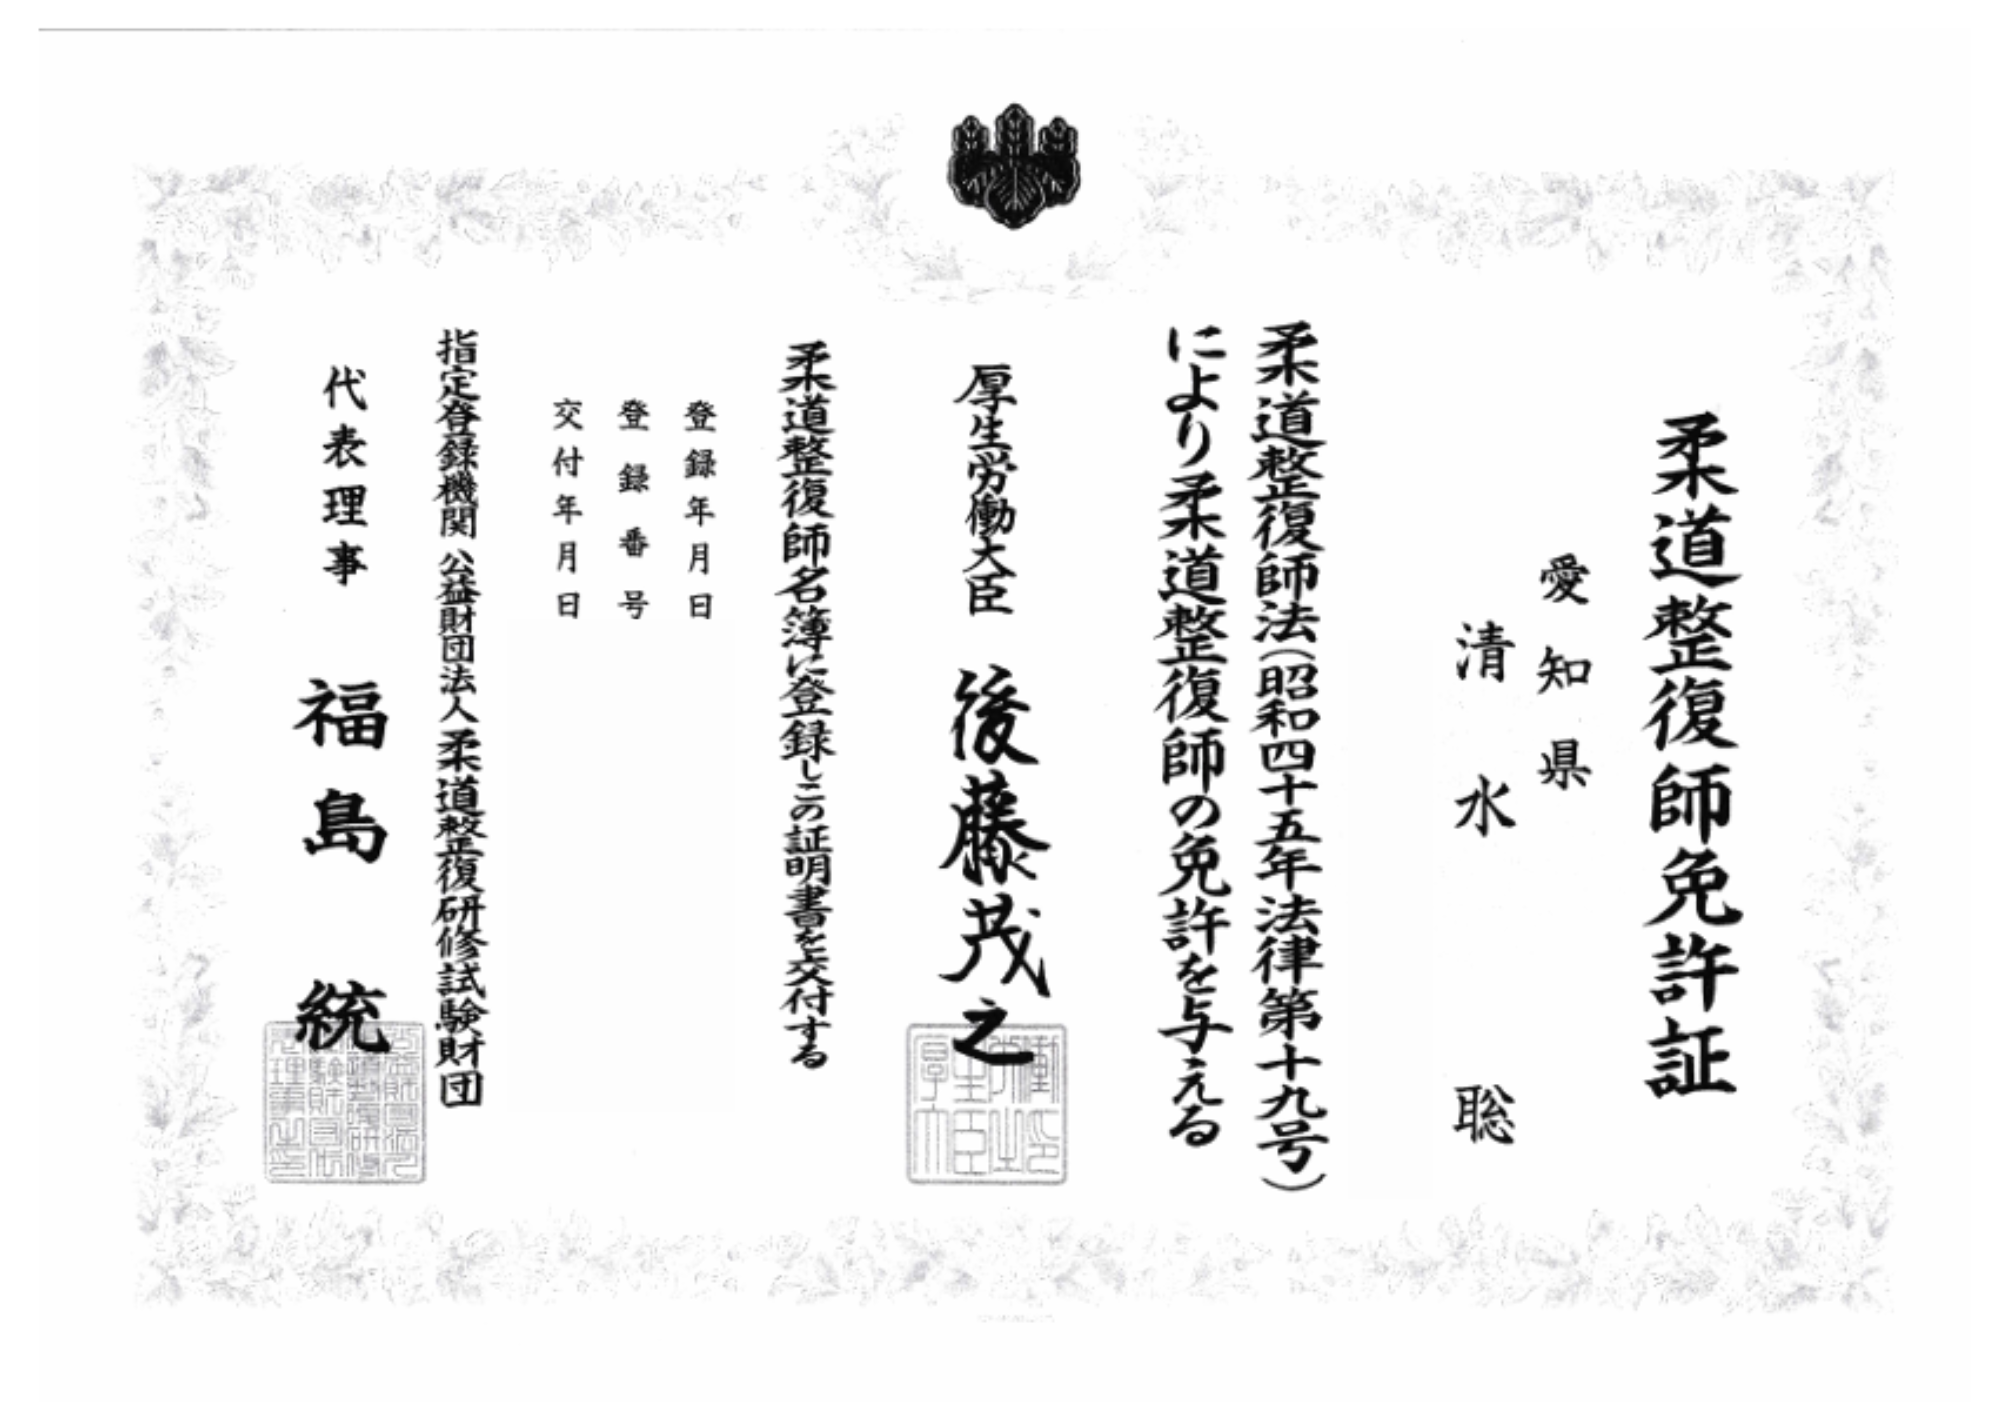 柔道整復師免許証
愛知県
清水 聡
柔道整復師法(昭和四十五年法律第十九号)
により柔道整復師の免許を与える
厚生労働大臣 後藤茂之
柔道整復師名簿に登録しこの証明書を交付する
登録年月日
登録番号
交付年月日
指定登録機関 公益財団法人 柔道整復研修試験財団
代表理事 福島 統